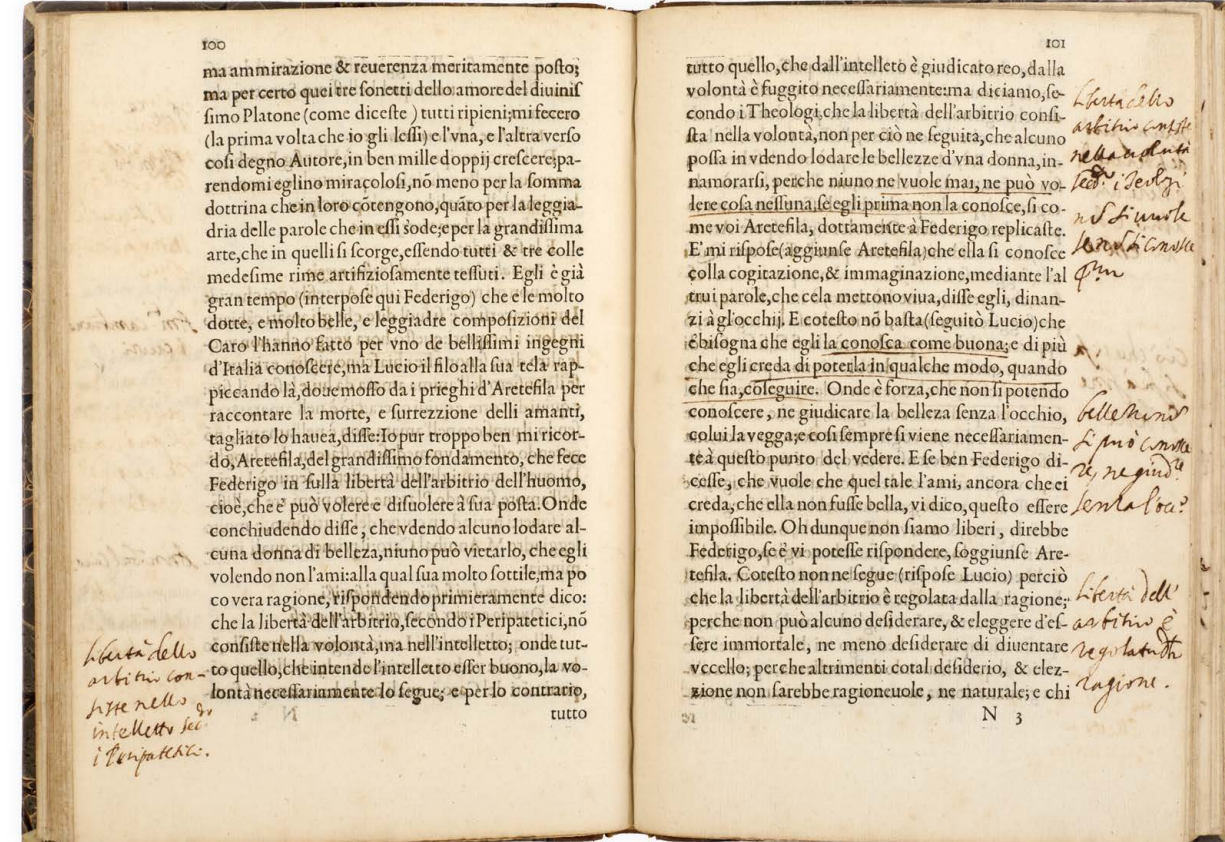 100
ma ammirazione & reuerenza meritamente posto;
ma per certo quei tre sonetti dello amore del diuinis
simo Platone (come diceste ) tutti ripieni;mi fecero
(la prima volta che io gli lessi) e l'vna, e l'altra verso
cosi degno Autore,in ben mille doppij crescere;pa-
rendomi eglino miracolosi,nõ meno per la somma
dottrina che in loro cõtengono,quãto per la leggia-
dria delle parole che in essi s'ode;e per la grandissima
arte,che in quelli si scorge,essendo tutti & tre colle
medesime rime artifiziosamente tessuti. Egli è già
gran tempo (interpose qui Federigo) che e le molto
dotte, e molto belle, e leggiadre composizioni del
Caro l'hanno fatto per vno de bellissimi ingegni
d'Italia conoscere,ma Lucio il filo alla sua tela rap-
piccando là,doue mosso da i prieghi d'Aretefila per
raccontare la morte, e surrezzione delli amanti,
tagliato lo hauea,disse:Io pur troppo ben mi ricor-
do,Aretefila,del grandissimo fondamento, che fece
Federigo in sulla libertà dell'arbitrio dell'huomo,
cioè,che e' può volere e disuolere à sua posta. Onde
conchiudendo disse, che vdendo alcuno lodare al-
cuna donna di bellezza,niuno può vietarlo, che egli
volendo non l'ami:alla qual sua molto sottile,ma po
co vera ragione, rispondendo primieramente dico:
che la libertà dell'arbitrio,secondo i Peripatetici,nõ
consiste nella volontà,ma nell'intelletto; onde tut-
to quello,che intende l'intelletto esser buono,la vo-
lontà necessariamente lo segue; e per lo contrario,
tutto
libertà dello
arbitrio con-
siste nello
intelletto sec.do
i Peripatetici.
101
tutto quello,che dall'intelleto è giudicato reo,dalla
volontà è fuggito necessariamente:ma diciamo,se-
condo i Theologi,che la libertà dell'arbitrio consi-
sta nella volontà,non per ciò ne seguita,che alcuno
possa in vdendo lodare le bellezze d'vna donna,in-
namorarsi, perche niuno ne vuole mai, ne può vo-
lere cosa nessuna,se egli prima non la conosce,si co-
me voi Aretefila, dottamente à Federigo replicaste.
E' mi rispose(aggiunse Aretefila)che ella si conosce
colla cogitazione,& immaginazione,mediante l'al
trui parole,che cela mettono viua,disse egli, dinan-
zi à gl'occhij. E cotesto nõ basta(seguitò Lucio)che
è bisogna che egli la conosca come buona; e di più
che egli creda di poterla in qualche modo, quando
che sia,cõseguire. Onde è forza,che non si potendo
conoscere, ne giudicare la belleza senza l'occhio,
colui la vegga;e cosi sempre si viene necessariamen-
te à questo punto del vedere. E se ben Federigo di-
cesse, che vuole che quel tale l'ami, ancora che ei
creda, che ella non fusse bella, vi dico,questo essere
impossibile. Oh dunque non siamo liberi, direbbe
Federigo,se è vi potesse rispondere, soggiunse Are-
tefila. Cotesto non ne segue (rispose Lucio) perciò
che la libertà dell'arbitrio è regolata dalla ragione;
perche non può alcuno desiderare, & eleggere d'es-
sere immortale, ne meno desiderare di diuentare
vccello; perche altrimenti cotal desiderio, & elez-
zione non sarebbe ragioneuole, ne naturale; e chi
N 3
libertà dello
arbitrio consiste
nella volontà
sec.do i Teologi
nõ si vuole
se nõ si conosce
p.a
bellezza nõ
si può conosce
re, ne giud.re
senza l'occ.o
libertà dell'
arbitrio è
regolata da
ragione.